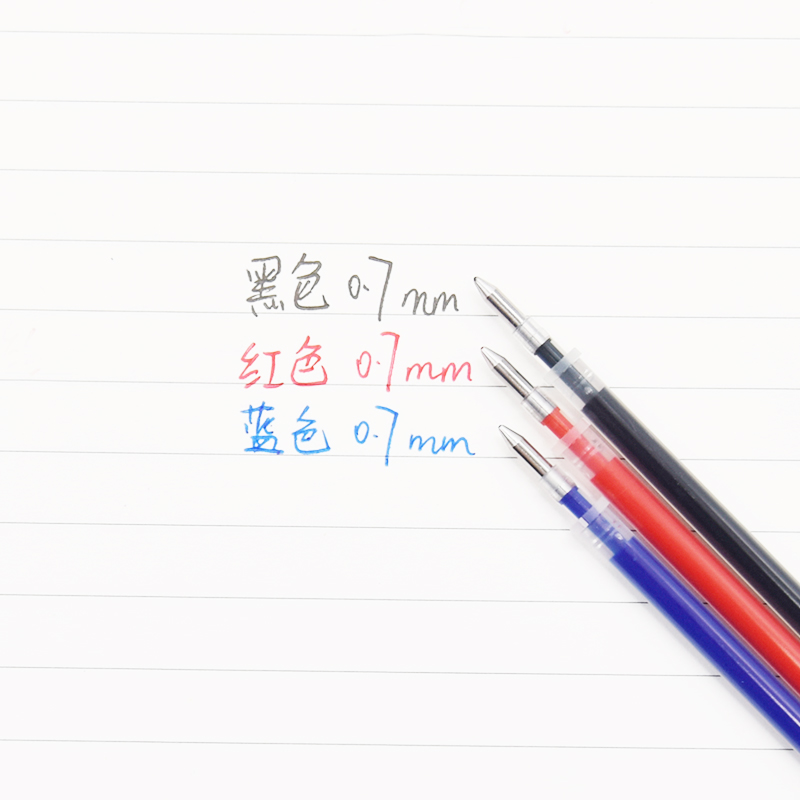 黑色 0.7mm
红色 0.7mm
蓝色 0.7mm